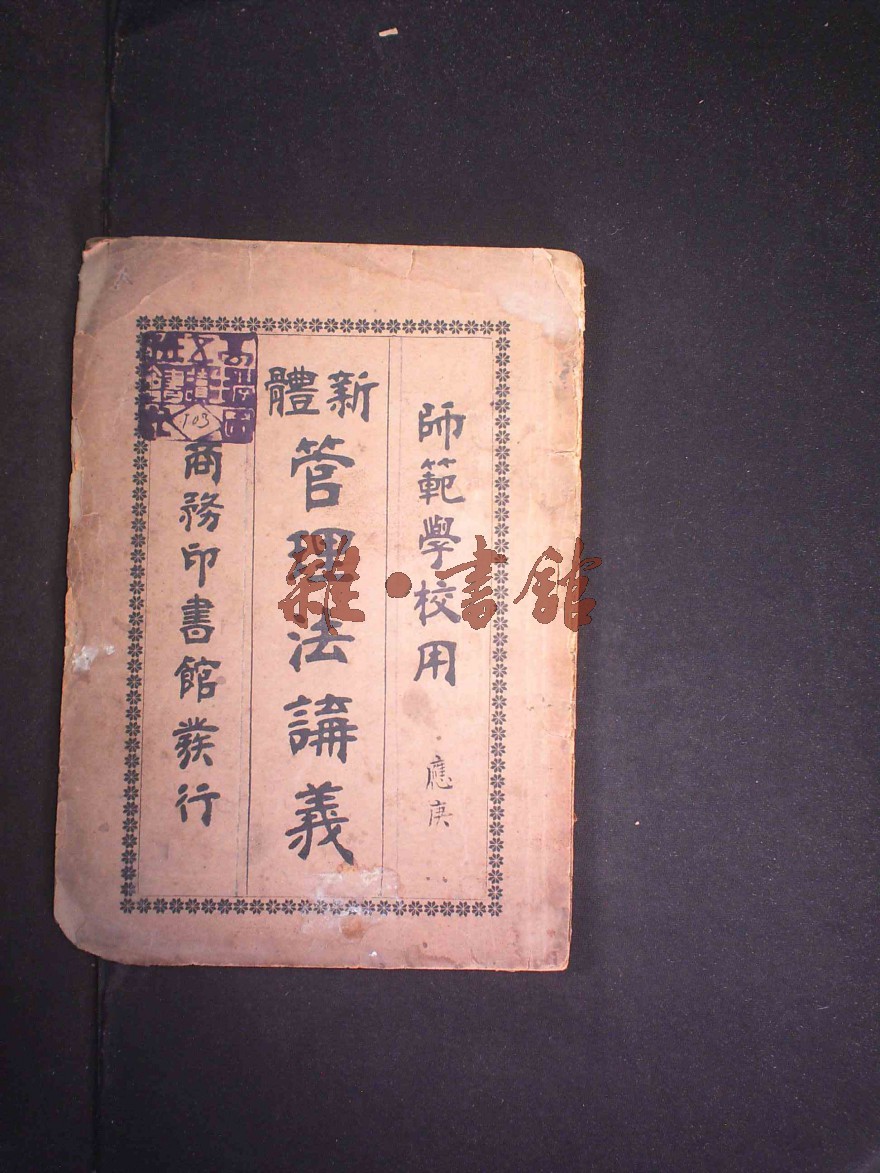 師範學校用
應庚
新體
管理法講義
商務印書館發行
103
雜·書館